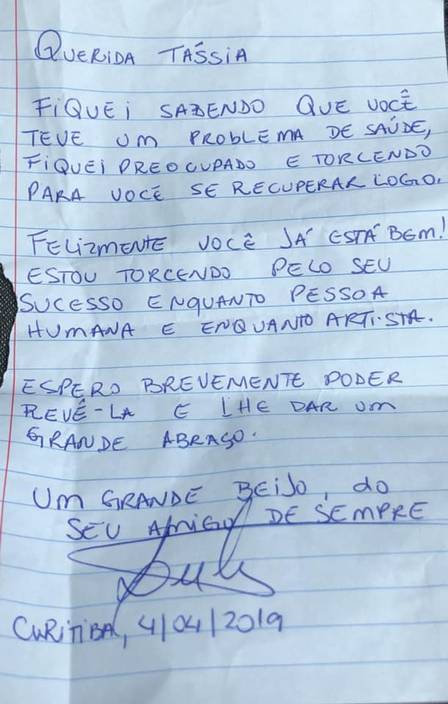 Querida Tássia
Fiquei sabendo que você
teve um problema de saúde,
fiquei preocupado e torcendo
para você se recuperar logo.
Felizmente você já está bem!
Estou torcendo pelo seu
sucesso enquanto pessoa
humana e enquanto artista.
Espero brevemente poder
revê-la e lhe dar um
grande abraço.
Um grande beijo, do
seu amigo de sempre
Curitiba, 4/04/2019